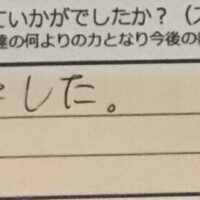 ていかがでしたか？（
達の何よりの力となり今後の
ました。